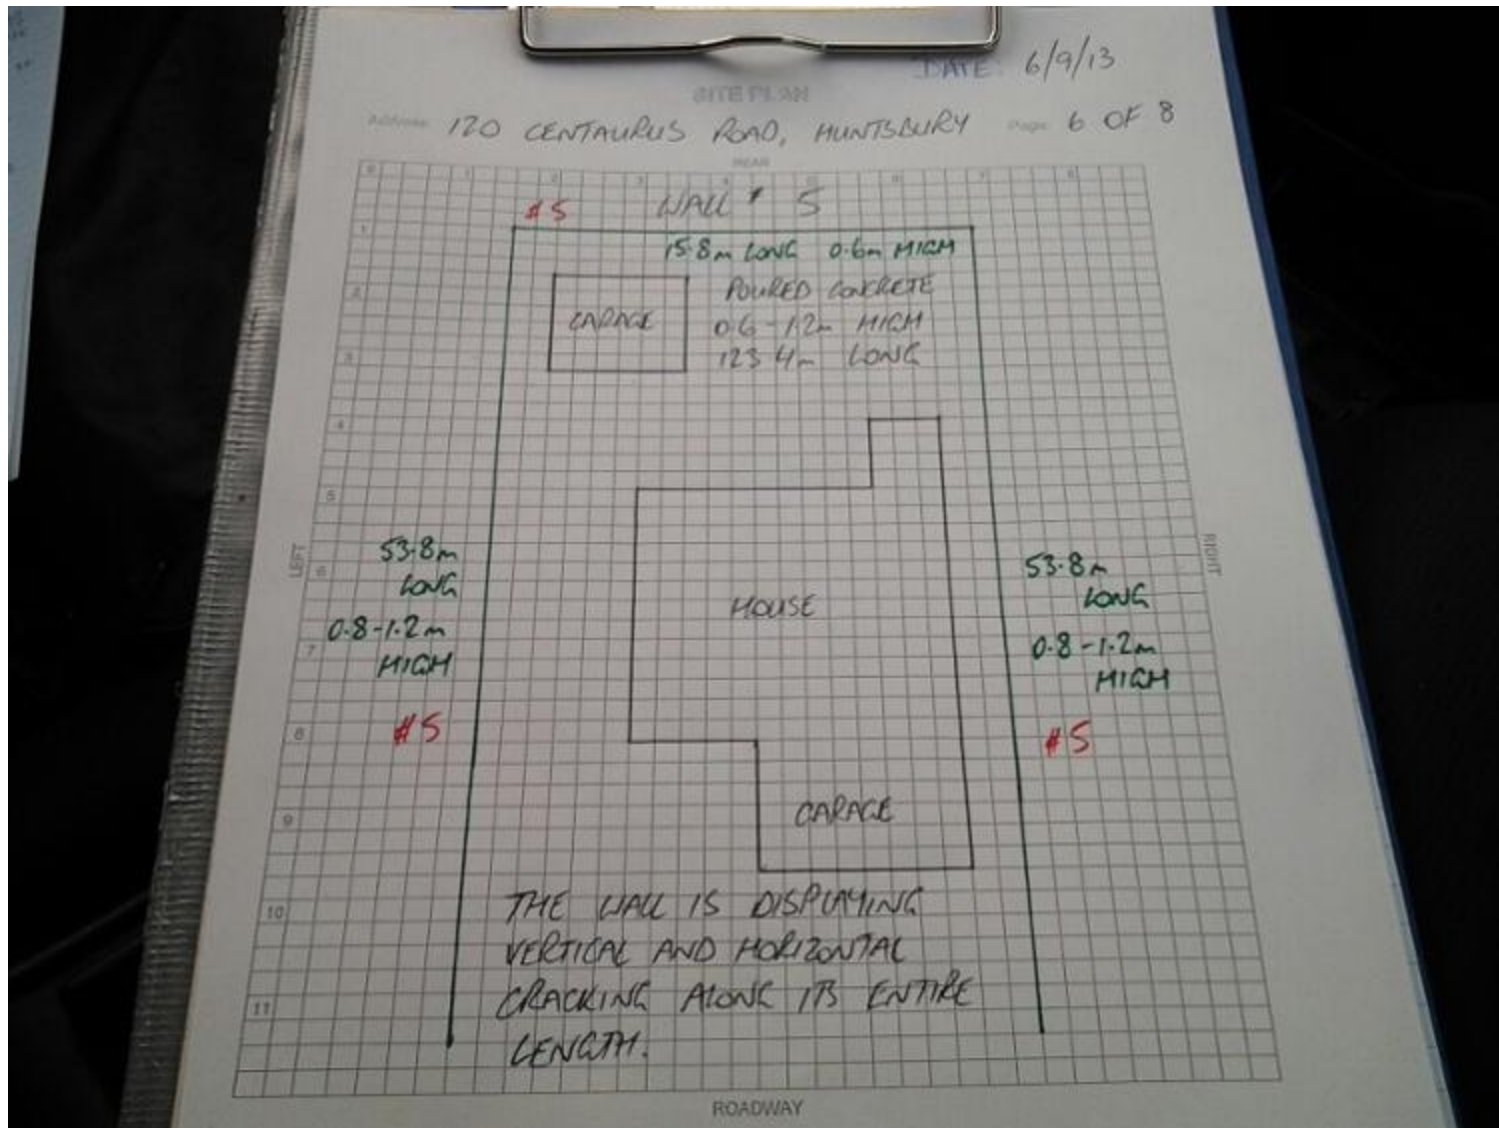 DATE: 6/9/13
SITE PLAN
Address: 120 CENTAURUS ROAD, HUNTSBURY Page: 6 OF 8
REAR
0 1 2 3 4 5 6 7 8
#5 WALL # 5
1
15.8m LONG 0.6m HIGH
2
POURED CONCRETE
GARAGE
0.6-1.2m HIGH
3
123.4m LONG
4
5
LEFT
RIGHT
53.8m
LONG
0.8-1.2m
HIGH
#5
6
7
8
HOUSE
53.8m
LONG
0.8-1.2m
HIGH
#5
9
GARAGE
10
11
THE WALL IS DISPLAYING
VERTICAL AND HORIZONTAL
CRACKING ALONG ITS ENTIRE
LENGTH.
ROADWAY